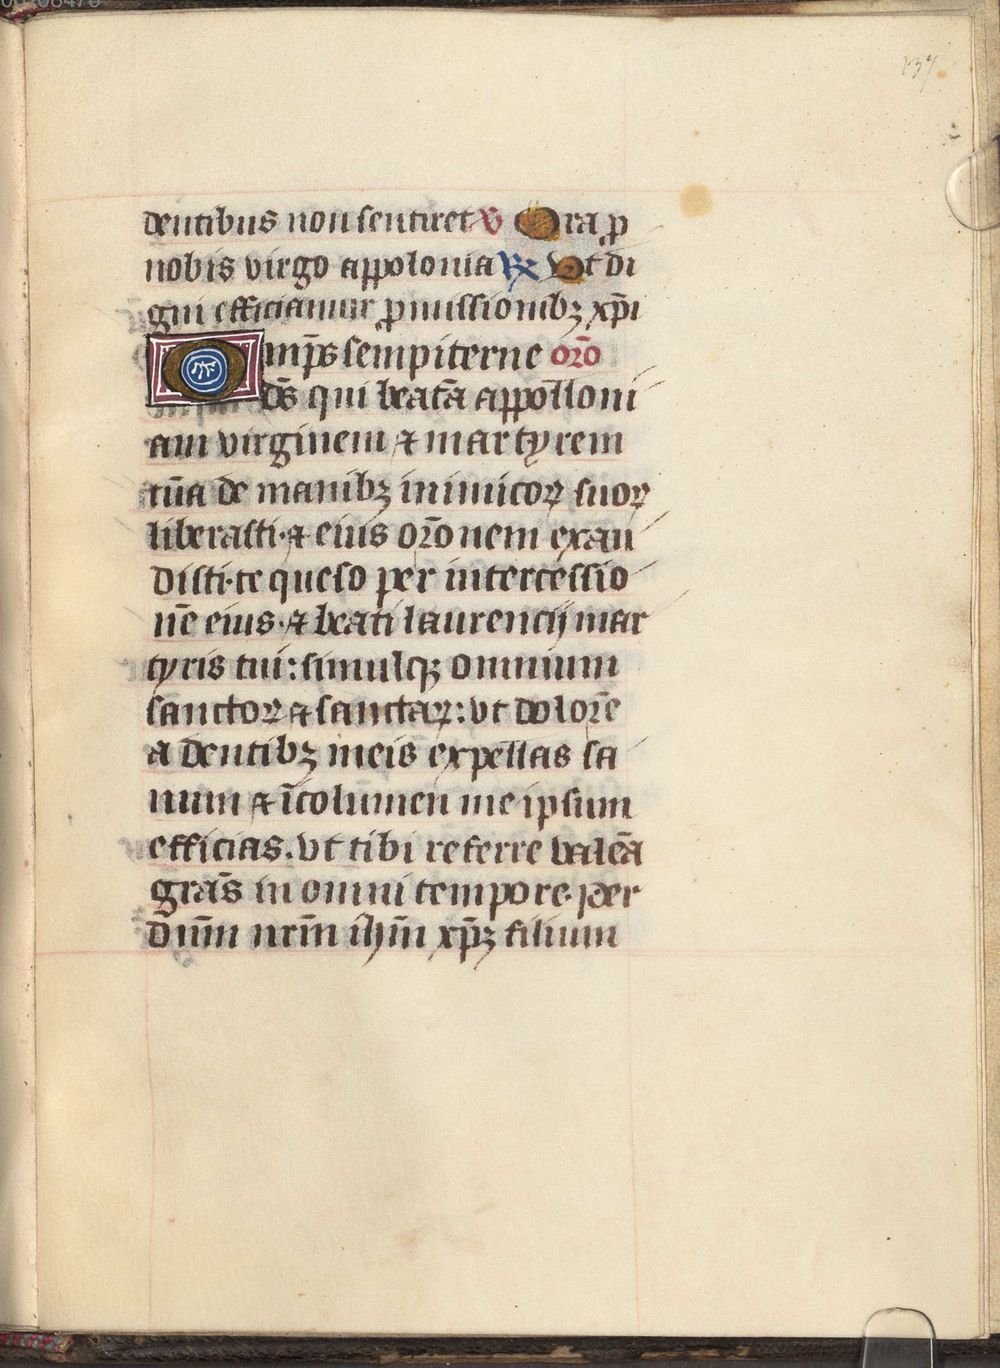 137
dentibus non sentiret ℣ Ora ꝓ
nobis virgo appolonia ℟ Ut di
gni efficiamur ꝓmissionibꝫ xp̄i
Omp̄s sempiterne oro̅
ds̄ qui beata̅ appo̅lloni
am virginem ⁊ martyrem
tua̅ de manibꝫ inimicoꝝ suoꝝ
liberasti·⁊ eius oro̅nem exau
disti·te queso per intercessio
ne̅ eius·⁊ beati laurencij mar
tyris tui: simulqꝫ omnium
sanctoꝝ ⁊ sanctaꝝ: vt dolore̅
a dentibꝫ meis expellas sa
num ⁊ i̅columen me ipsum
efficias. vt tibi referre valea̅
gra̅s in omni tempore. per
dn̅m nr̅m ih̅m xp̄ꝫ filium